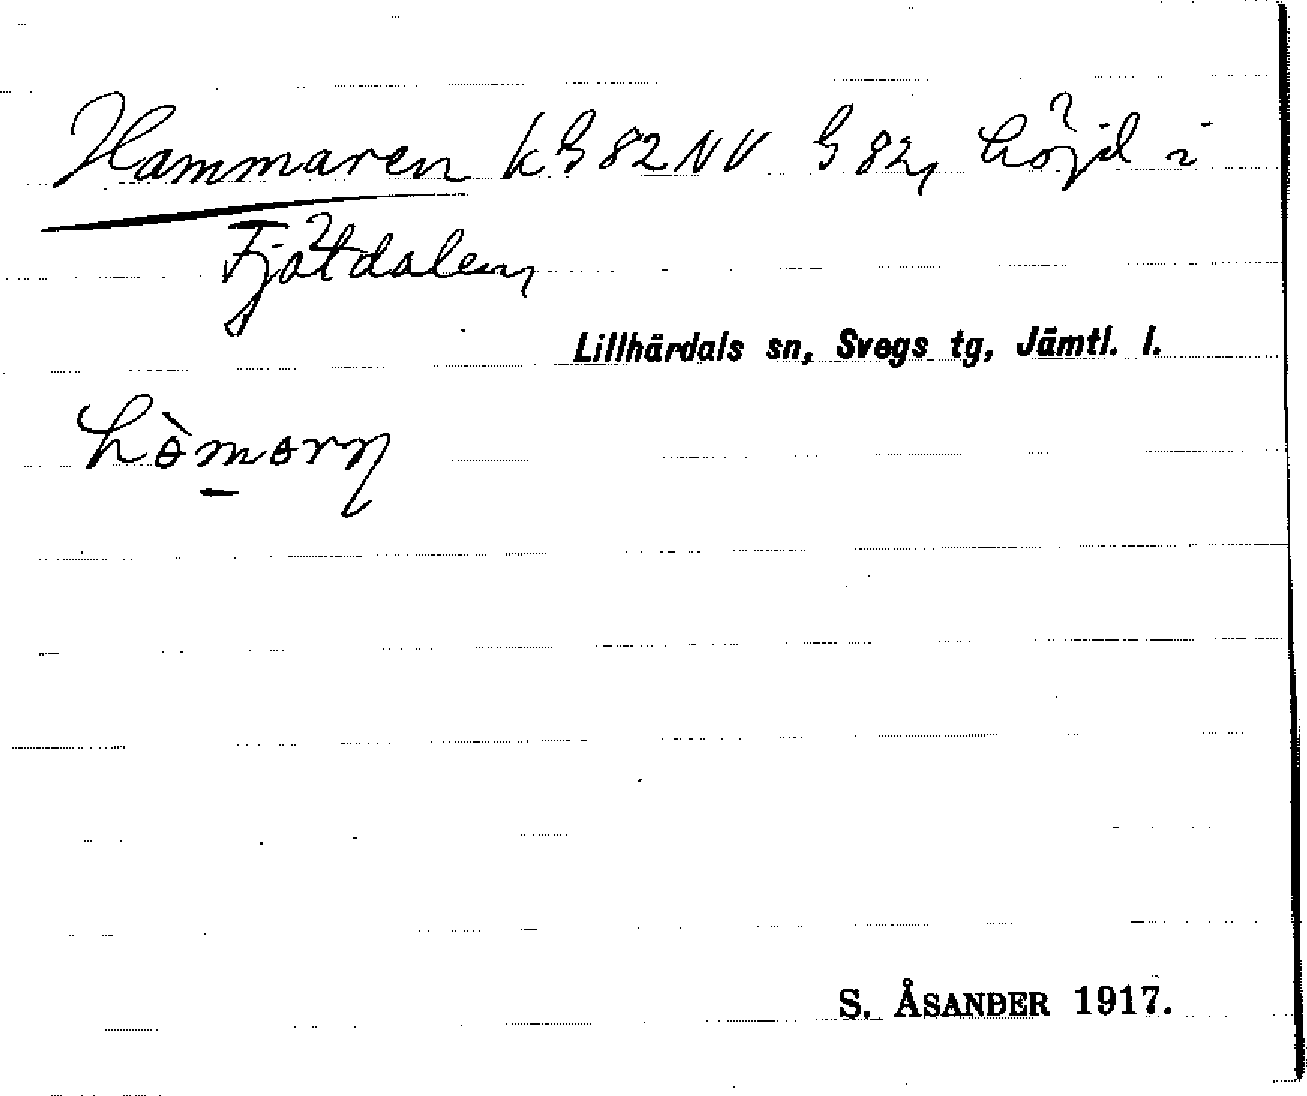 Hammaren k G 82 NV G 82, höjd i
Fjätdalen
Lillhärdals sn, Svegs tg, Jämtl. l.
S. ÅSANDER 1917.